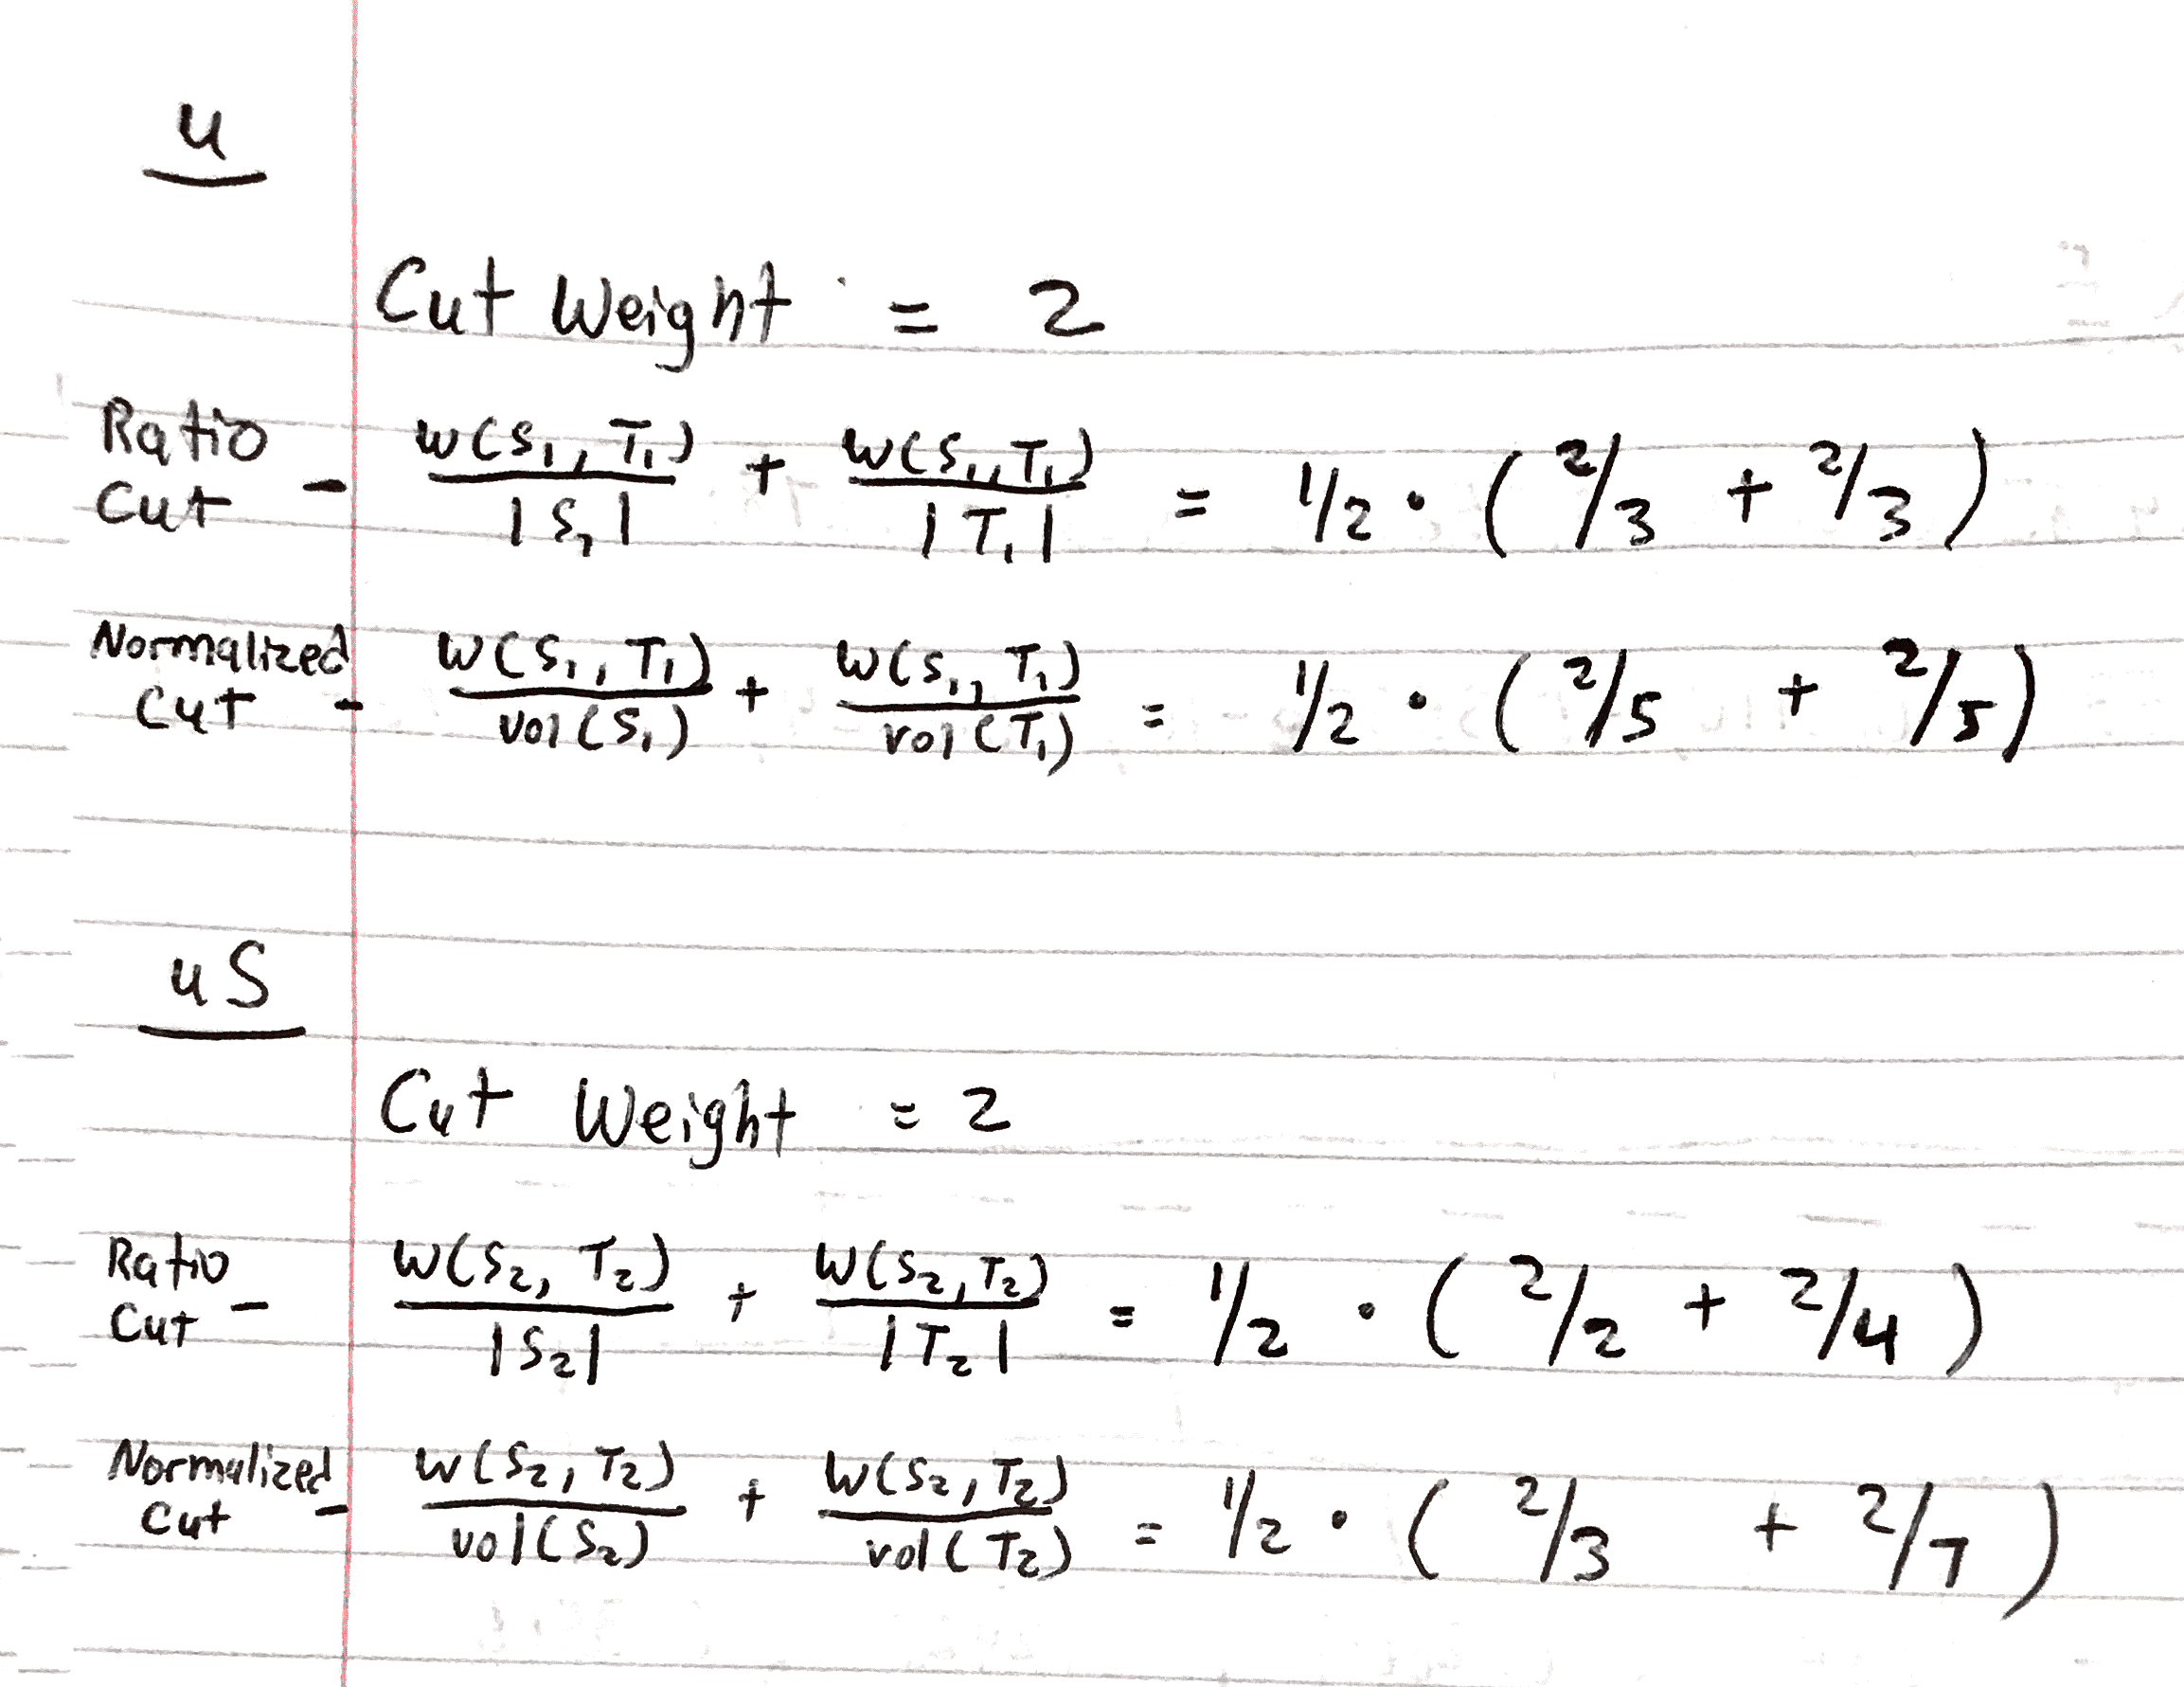 u
Cut Weight = 2
Ratio Cut - w(S₁, T₁)/|S₁| + w(S₁, T₁)/|T₁| = 1/2 · (2/3 + 2/3)
Normalized Cut - w(S₁, T₁)/vol(S₁) + w(S₁, T₁)/vol(T₁) = 1/2 · (2/5 + 2/5)
uS
Cut Weight = 2
Ratio Cut - w(S₂, T₂)/|S₂| + w(S₂, T₂)/|T₂| = 1/2 · (2/2 + 2/4)
Normalized Cut - w(S₂, T₂)/vol(S₂) + w(S₂, T₂)/vol(T₂) = 1/2 · (2/3 + 2/7)